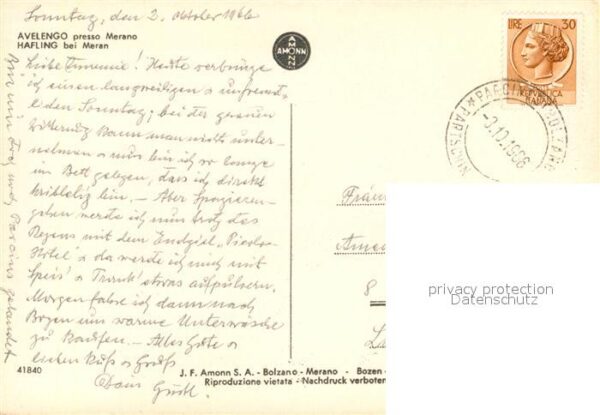 Sonntag, den 2. Oktober 1966
AVELENGO presso Merano
HAFLING bei Meran
AMONN
AMONN
LIRE 30
REPVBBLICA
ITALIANA
PARCINES
BOLZANO
PARTSCHINS
-3.10.1966
Liebe ! Heute verbringe
ich einen langweiligen &
den Sonntag; bei der grauen
Witterung kann man nichts unter-
nehmen & nun bin ich so lange
im Bett gelegen, dass ich direkt
kribbelig bin. — Aber spazieren-
gehen werde ich nun trotz des
Regens mit dem Endziel
Hotel & da werde ich mich mit
Speis' & Trank' etwas aufpulvern.
Morgen fahre ich dann nach
Bozen um warme Unterwäsche
zu kaufen. — Alles Gute &
lieben Kuß & Gruß
Bin nun nach Parcins gelandet
8
privacy protection
Datenschutz
41840
J. F. Amonn S. A. - Bolzano - Merano - Bozen -
Riproduzione vietata - Nachdruck verboten